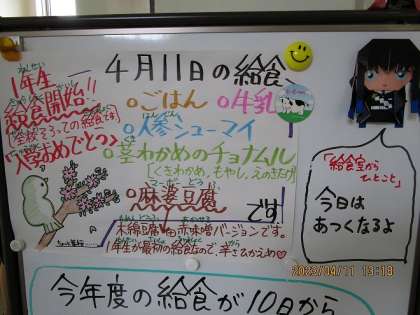 1年生
給食開始!!
[全校そろっての給食です]
入学おめでとう
4月11日の給食
○ごはん ○牛乳
○人参シューマイ
○茎わかめのチョナムル
[くきわかめ、もやし、えのきたけ]
○麻婆豆腐 です
木綿豆腐 白赤味噌バージョンです。
1年生が最初の給食なので、辛さひかえめ♡
「給食室から
ひとこと」
今日は
あつくなるよ
今年度の給食が10日から
2023/04/11 13:19